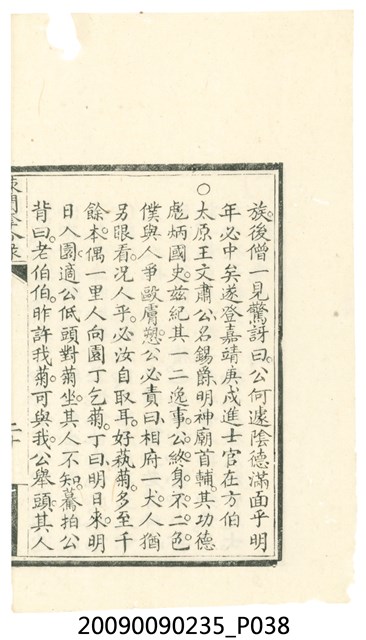 族後僧一見驚訝曰公何遽陰德滿面乎明
年必中矣遂登嘉靖庚戌進士官在方伯
○太原王文肅公名錫爵明神廟首輔其功德
彪炳國史茲紀其一二逸事公終身不二色
僕與人爭毆膚愬公必責曰相府一犬人猶
另眼看況人乎必汝自取耳好蓺菊多至千
餘本偶一里人向園丁乞菊丁曰明日來明
日入園適公低頭對菊坐其人不知驀拍公
背曰老伯伯昨許我菊可與我公舉頭其人
20090090235_P038